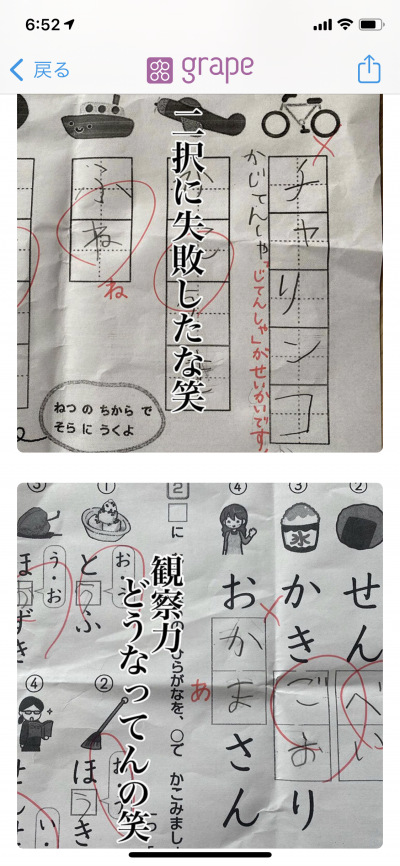 6:52
戻る
grape
二択に失敗したな笑
チャリンコ
かじてんしゃ
「じてんしゃ」がせいかいです。
ふね
ね
ねつ の ちから で
そら に うくよ
観察力
どうなってんの笑
②
せんべい
③
氷
かきごおり
④
おかまさん
あ
2
に
ひらがなを、○で かこみまし
①
とうふ
お・う
②
ほうき
③
う・お
ほ
ずき
④
い